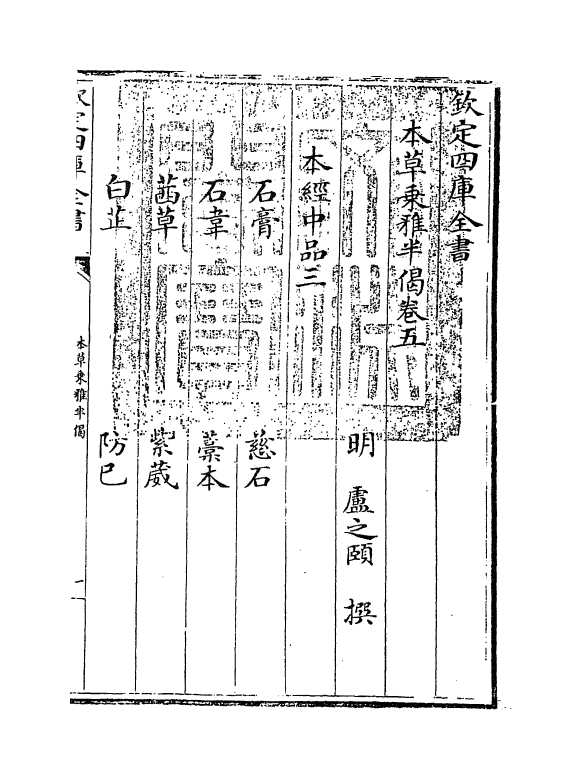 欽定四庫全書
本草乗雅半偈卷五
明 盧之頤 撰
本經中品三
石膏 慈石
石韋 藁本
茜草 紫葳
白芷 防已
欽定四庫全書
本草乗雅半偈
一